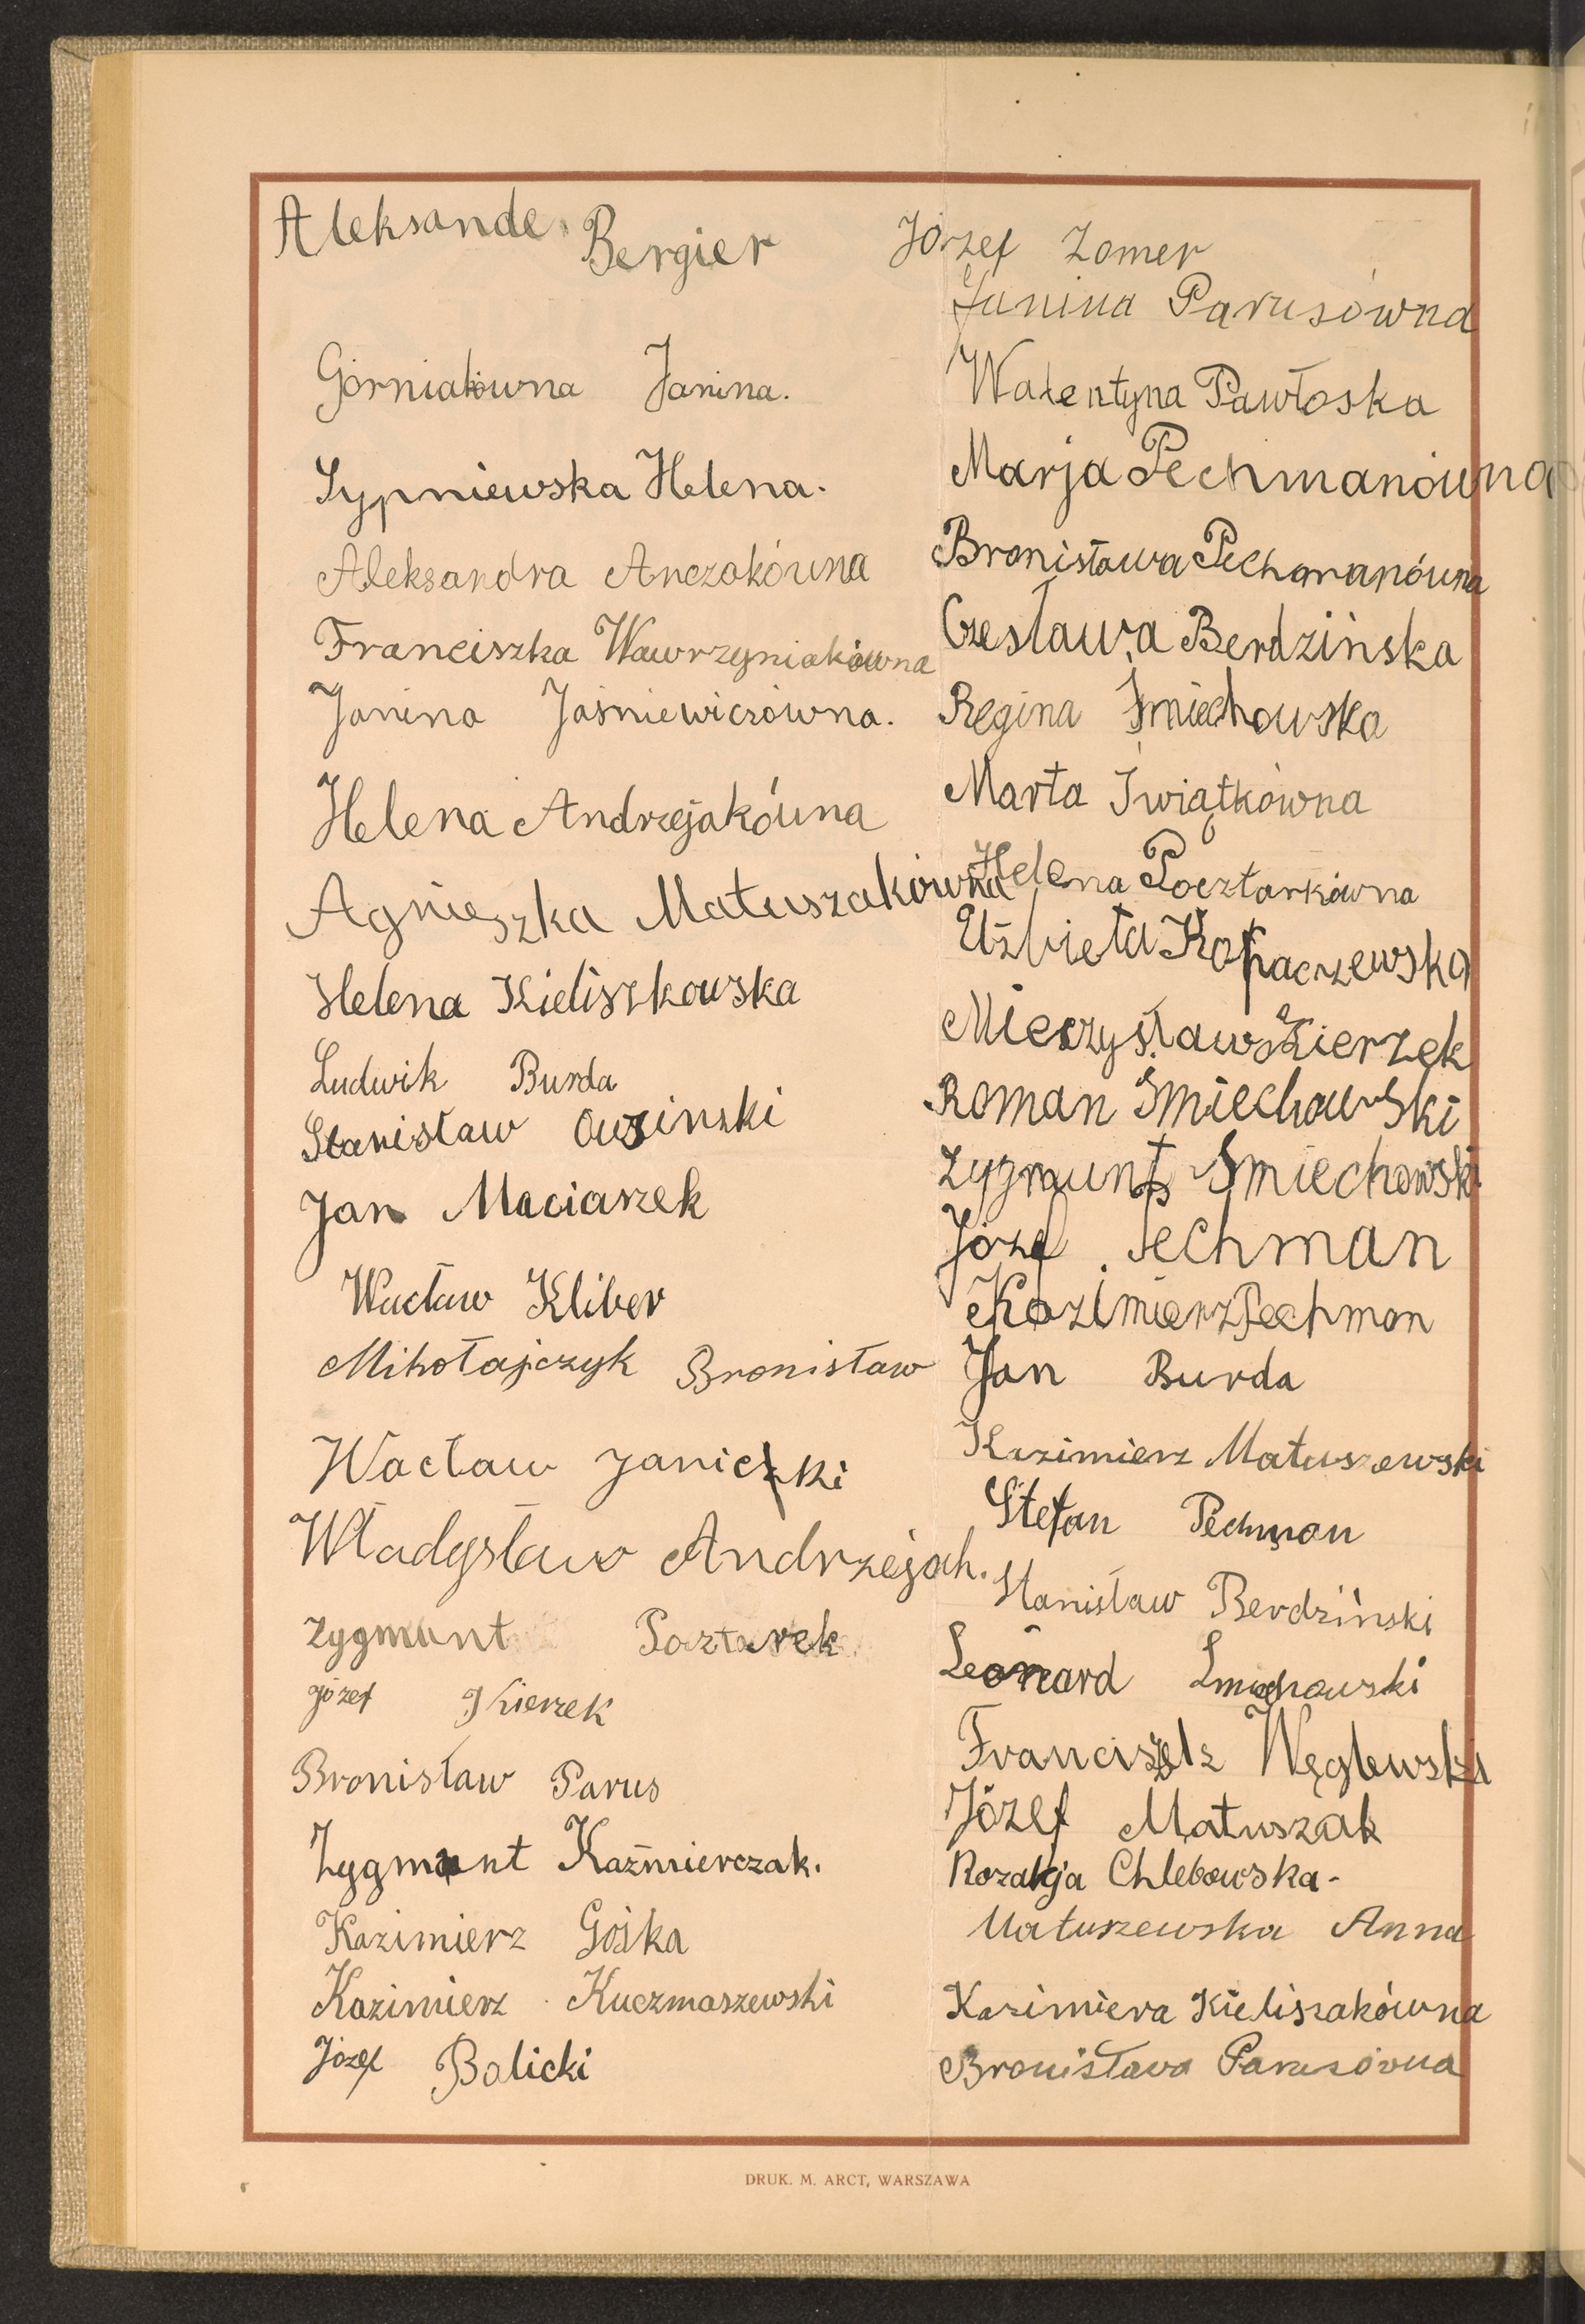 Aleksande Bergier
Górniakówna Janina.
Sypniewska Helena.
Aleksandra Anczakówna
Franciszka Wawrzyniakówna
Janina Jaśniewiczówna.
Helena Andrzejakówna
Agnieszka Matuszakówna
Helena Kieliszkowska
Ludwik Burda
Stanisław Owsinski
Jan Maciaszek
Wacław Kliber
Mikołajczyk Bronisław
Wacław Janicki
Władysław Andrzejak.
Zygmunt Pocztarek
Józef Kierzek
Bronisław Parus
Zygmunt Kaźmierczak.
Kazimierz Gośka
Kazimierz Kuczmaszewski
Józef Balicki
Józef Zomer
Janina Parusówna
Walentyna Pawłoska
Marja Pechmanówna
Bronisława Pechmanówna
Czesława Berdzińska
Regina Śmiechowska
Marta Świątkówna
Helena Pocztarkówna
Elżbieta Kopaczewska
Mieczysław Kierzek
Roman Śmiechowski
Zygmunt Smiechowski
Józef Pechman
Kazimierz Pechman
Jan Burda
Kazimierz Matuszewski
Stefan Pechman
Stanisław Berdziński
Leonard Smiechowski
Franciszek Węglewski
Józef Matuszak
Rozalja Chlebowska-
Matuszewska Anna
Kazimiera Kieliszakówna
Bronisława Parusówna
DRUK. M. ARCT, WARSZAWA